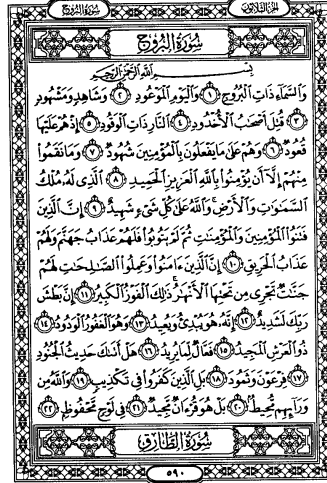 الجزء الثلاثون
سورة البروج
سورة البروج
بسم الله الرحمن الرحيم
وَالسَّمَاءِ ذَاتِ الْبُرُوجِ ١ وَالْيَوْمِ الْمَوْعُودِ ٢ وَشَاهِدٍ وَمَشْهُودٍ
٣ قُتِلَ أَصْحَابُ الْأُخْدُودِ ٤ النَّارِ ذَاتِ الْوَقُودِ ٥ إِذْ هُمْ عَلَيْهَا
قُعُودٌ ٦ وَهُمْ عَلَىٰ مَا يَفْعَلُونَ بِالْمُؤْمِنِينَ شُهُودٌ ٧ وَمَا نَقَمُوا
مِنْهُمْ إِلَّا أَن يُؤْمِنُوا بِاللَّهِ الْعَزِيزِ الْحَمِيدِ ٨ الَّذِي لَهُ مُلْكُ
السَّمَٰوَٰتِ وَالْأَرْضِ وَاللَّهُ عَلَىٰ كُلِّ شَيْءٍ شَهِيدٌ ٩ إِنَّ الَّذِينَ
فَتَنُوا الْمُؤْمِنِينَ وَالْمُؤْمِنَٰتِ ثُمَّ لَمْ يَتُوبُوا فَلَهُمْ عَذَابُ جَهَنَّمَ وَلَهُمْ
عَذَابُ الْحَرِيقِ ١٠ إِنَّ الَّذِينَ ءَامَنُوا وَعَمِلُوا الصَّٰلِحَٰتِ لَهُمْ
جَنَّٰتٌ تَجْرِي مِن تَحْتِهَا الْأَنْهَٰرُ ذَٰلِكَ الْفَوْزُ الْكَبِيرُ ١١ إِنَّ بَطْشَ
رَبِّكَ لَشَدِيدٌ ١٢ إِنَّهُ هُوَ يُبْدِئُ وَيُعِيدُ ١٣ وَهُوَ الْغَفُورُ الْوَدُودُ ١٤
ذُو الْعَرْشِ الْمَجِيدُ ١٥ فَعَّالٌ لِّمَا يُرِيدُ ١٦ هَلْ أَتَىٰكَ حَدِيثُ الْجُنُودِ
١٧ فِرْعَوْنَ وَثَمُودَ ١٨ بَلِ الَّذِينَ كَفَرُوا فِي تَكْذِيبٍ ١٩ وَاللَّهُ مِن
وَرَائِهِم مُّحِيطٌ ٢٠ بَلْ هُوَ قُرْءَانٌ مَّجِيدٌ ٢١ فِي لَوْحٍ مَّحْفُوظٍ ٢٢
سورة الطارق
٥٩٠